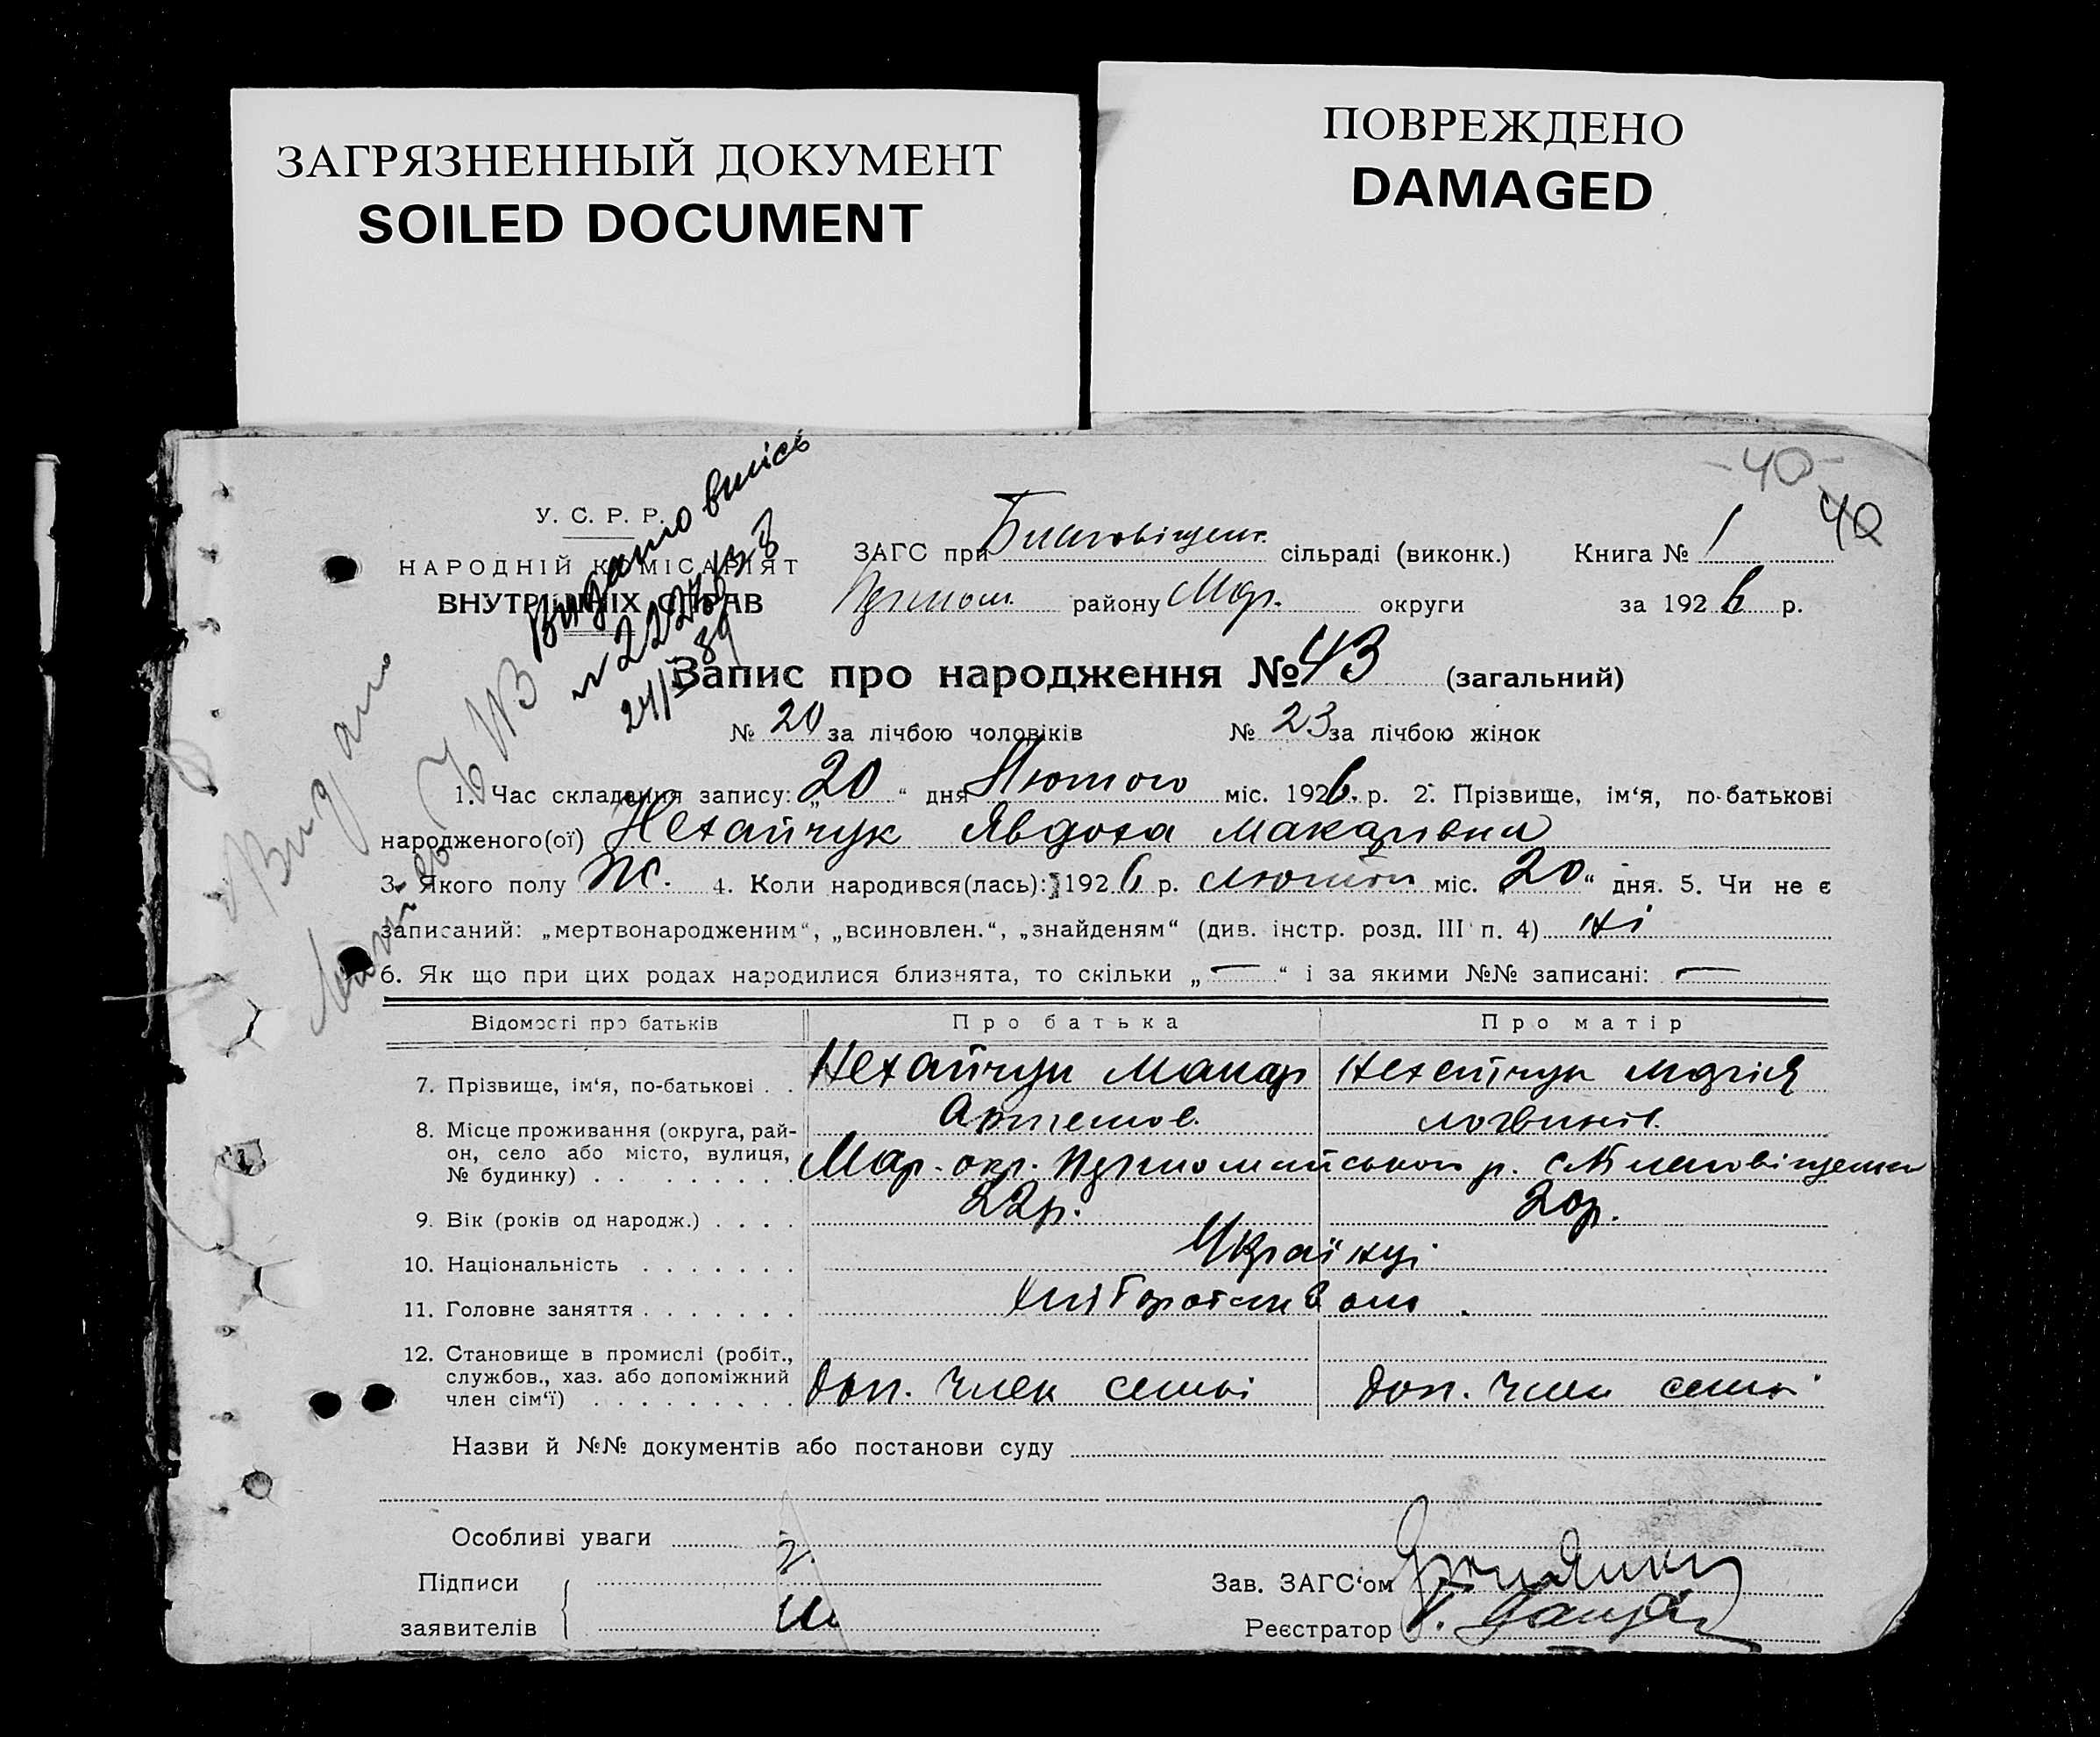 ЗАГРЯЗНЕННЫЙ ДОКУМЕНТ
SOILED DOCUMENT
ПОВРЕЖДЕНО
DAMAGED
-40-
40
У. С. Р. Р.
НАРОДНІЙ КОМІСАРІЯТ
ВНУТРІШНІХ СПРАВ
Видано
Видано випісь
ЗАГС при Благовіщен. сільраді (виконк.) Книга № 1
району Мар. округи за 1926 р.
Запис про народження № 43 (загальний)
№ 20 за лічбою чоловіків № 23 за лічбою жінок
1. Час складання запису: „20“ дня Лютого міс. 1926 р. 2. Прізвище, ім‘я, по-батькові
народженого(ої) Нехайчук Явдоха Макарівна
3. Якого полу Ж. 4. Коли народився(лась): 1926 р. Лютого міс. 20“ дня. 5. Чи не є
записаний: „мертвонародженим“, „всиновлен.“, „знайденям“ (див. інстр. розд. III п. 4) Ні
6. Як що при цих родах народилися близнята, то скільки „—“ і за якими №№ записані: —
Відомості про батьків Про батька Про матір
7. Прізвище, ім‘я, по-батькові . . Нехайчук Макар Нехайчук Марія
Артемов. Логвинів.
8. Місце проживання (округа, рай-
он, село або місто, вулиця,
№ будинку) . . . . . . . . Мар. окр. Першомайськой р. с. Благовіщенка
9. Вік (років од народж.) . . . . 22р. 20р.
10. Національність . . . . . . . Українці
11. Головне заняття . . . . . . . Хліборобство
12. Становище в промислі (робіт.,
службов., хаз. або допоміжний
член сім‘ї) . . . . . . . . . Доп. член семьї Доп. член семьї
Назви й №№ документів або постанови суду
Особливі уваги
Підписи
заявителів
Зав. ЗАГС‘ом
Реєстратор